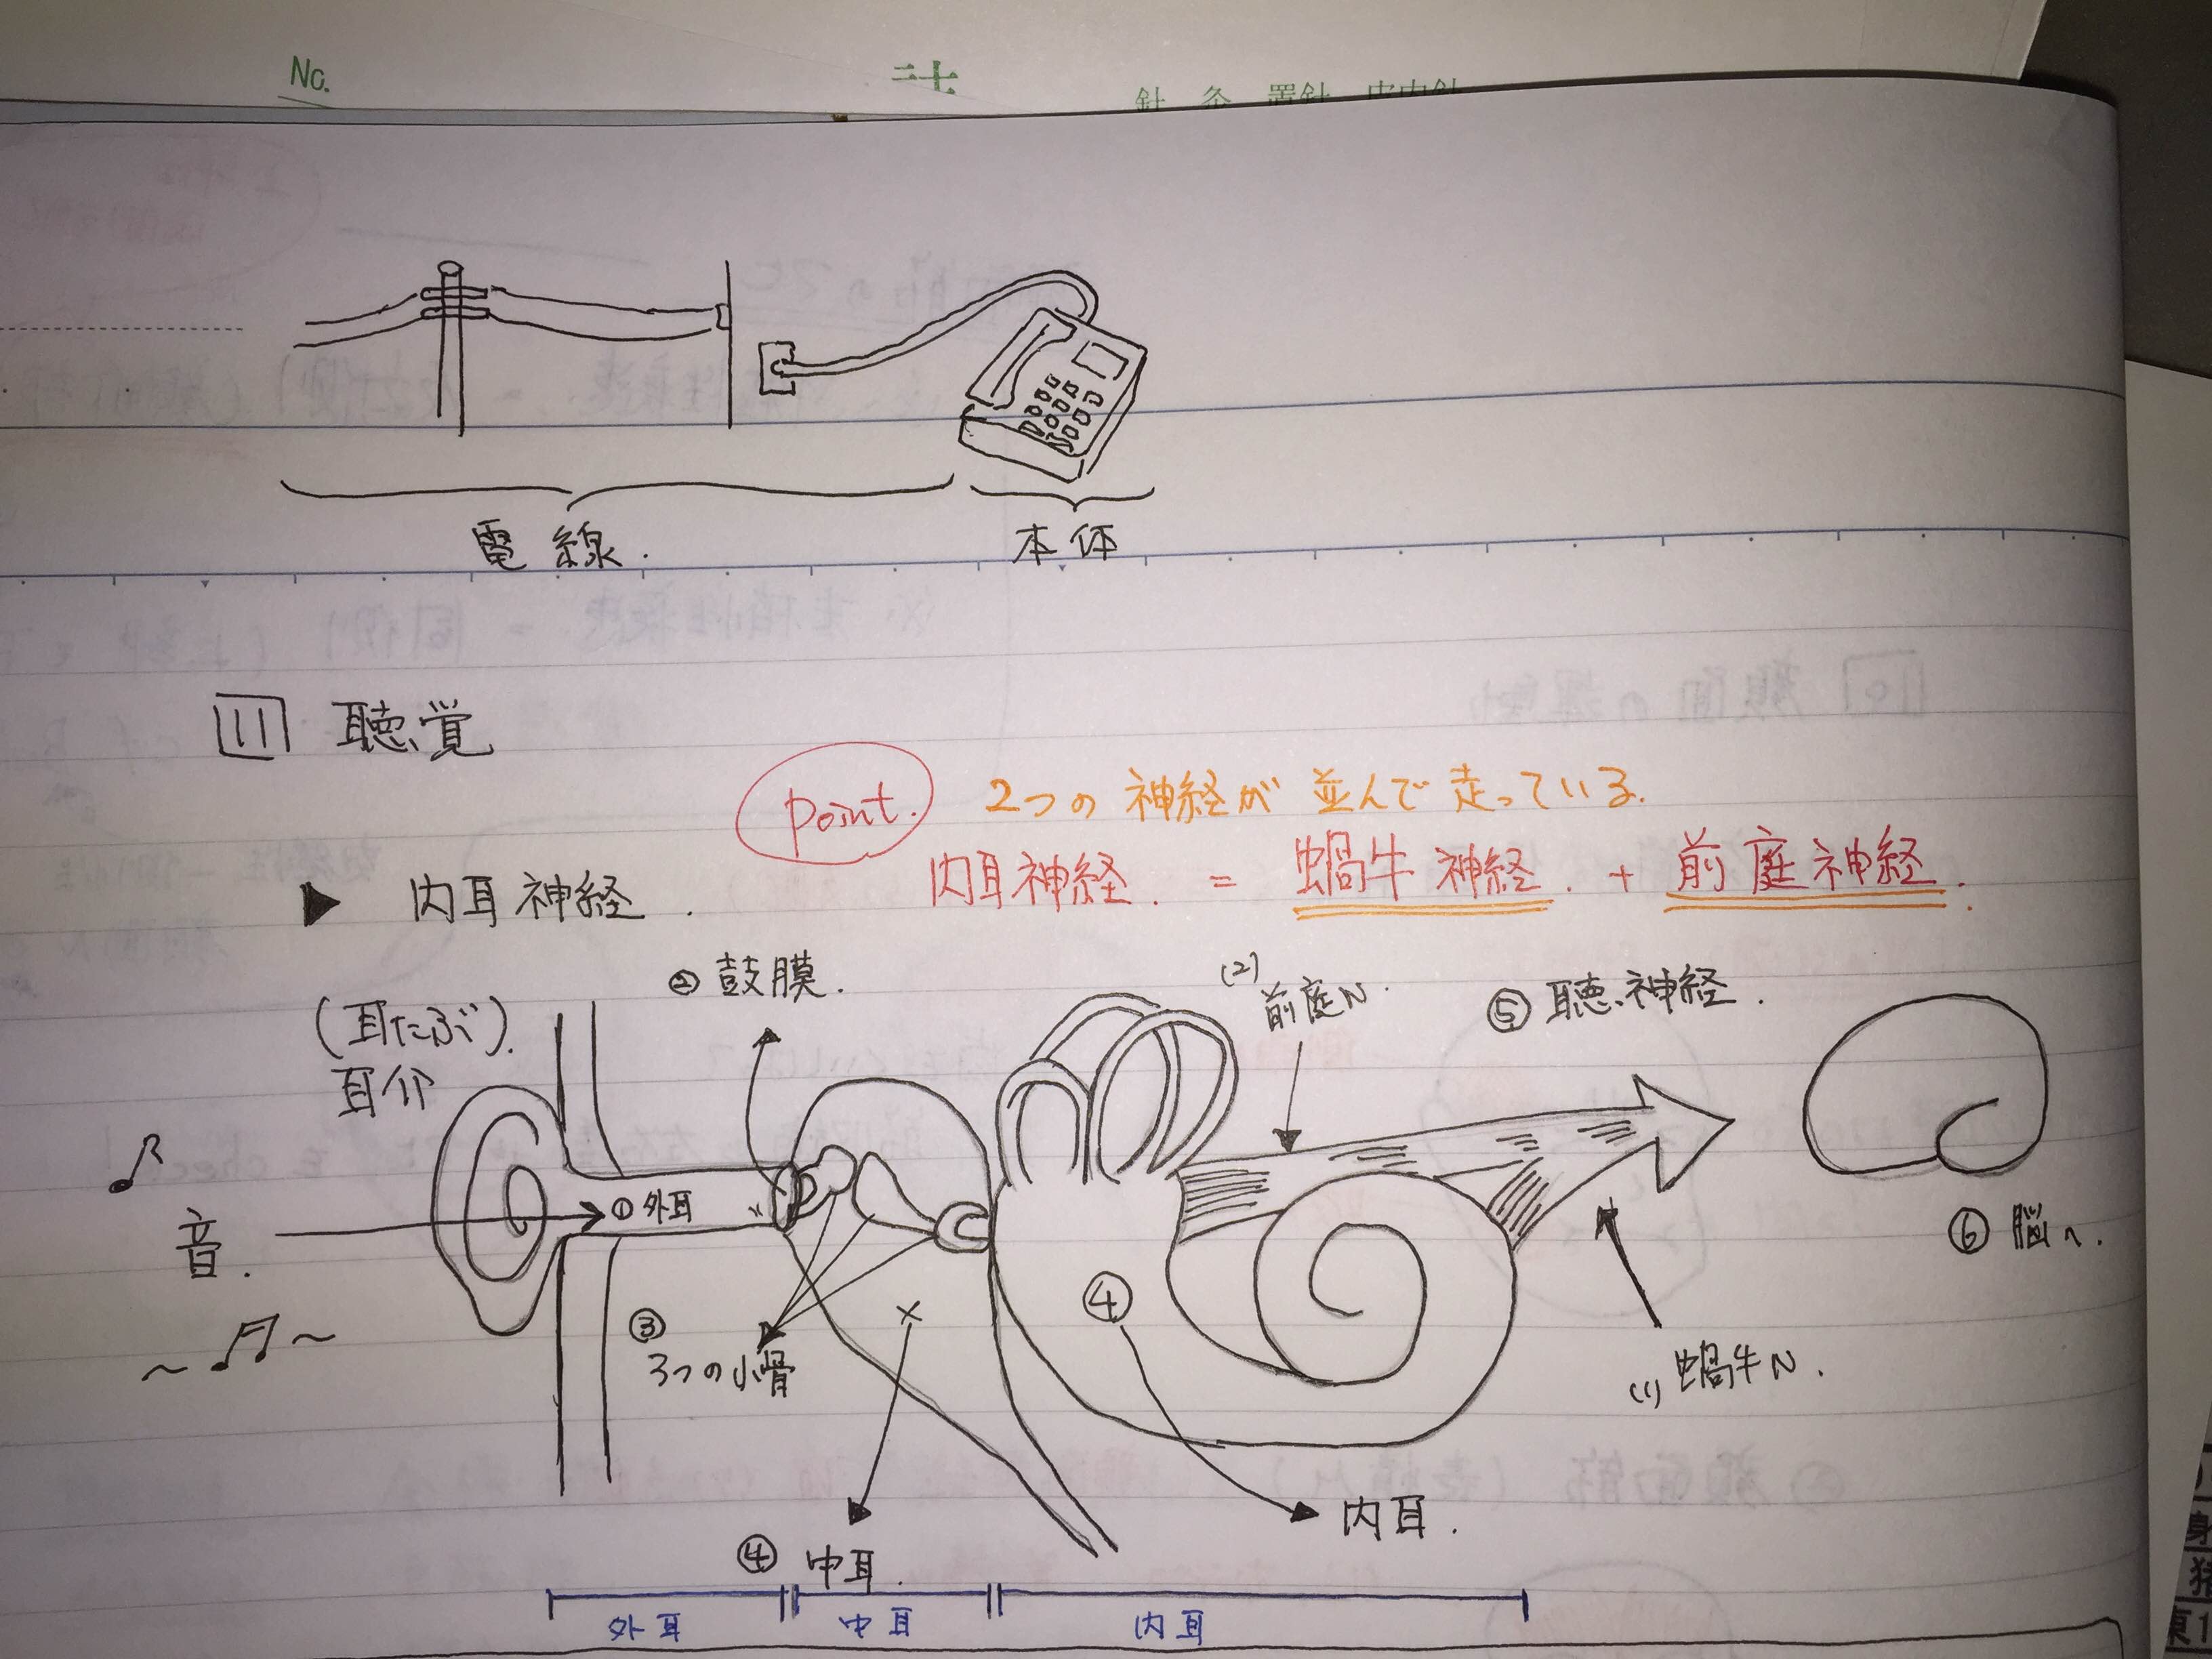 No.
針 灸 置針 皮内針
電線.
本体
11 聴覚
point. 2つの神経が並んで走っている.
▶ 内耳神経. 内耳神経. = 蝸牛神経. + 前庭神経.
② 鼓膜.
(2) 前庭N.
⑤ 聴神経.
(耳たぶ).
耳介
① 外耳
音.
⑥ 脳へ.
③
3つの小骨
④
(1) 蝸牛N.
内耳.
④ 中耳.
外耳 中耳 内耳